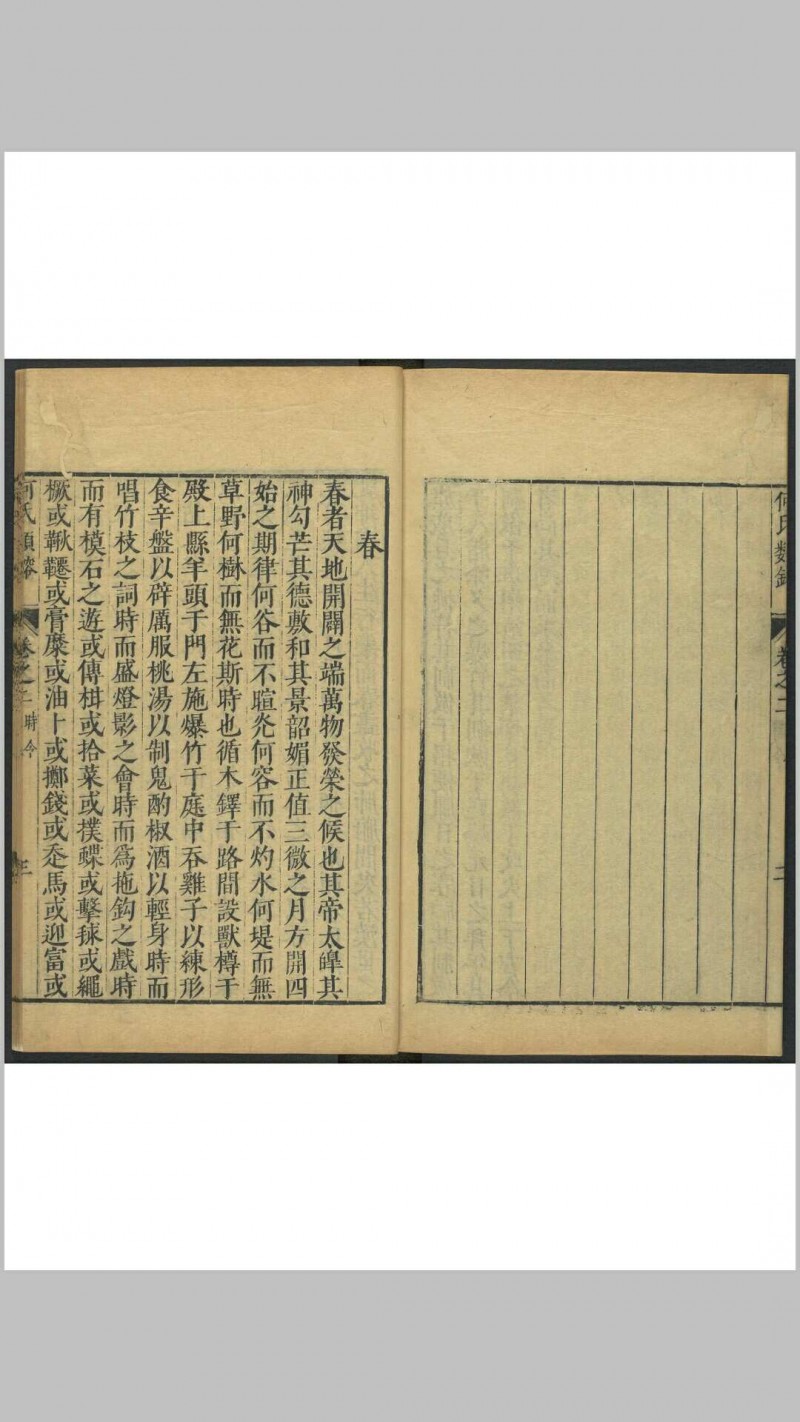 何氏類鎔
卷之二
二
春
春者天地開闢之端萬物發榮之候也其帝太皡其
神勾芒其德敷和其景韶媚正值三微之月方開四
始之期律何谷而不暄炎何容而不灼水何堤而無
草野何樹而無花斯時也循木鐸于路間設獸樽于
殿上縣羊頭于門左施爆竹于庭中吞雞子以練形
食辛盤以辟厲服桃湯以制鬼酌椒酒以輕身時而
唱竹枝之詞時而盛燈影之會時而爲拖鈎之戲時
而有模石之遊或傳柑或拾菜或撲蝶或擊毬或繩
橛或鞦韆或膏糜或油卜或擲錢或走馬或迎富或
何氏類鎔
卷之二時令
三